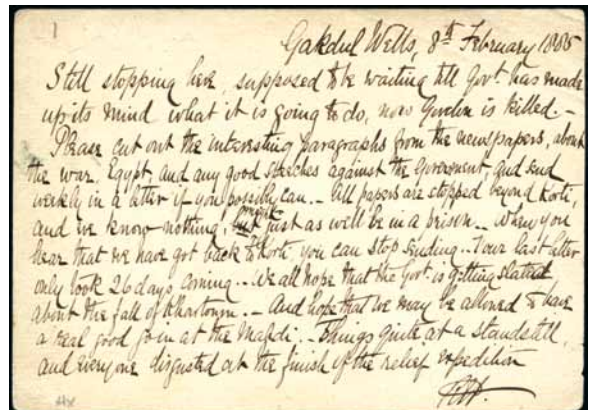 1
Gakdul Wells, 8th February 1885
Still stopping here, supposed to be waiting till Govt. has made
up its mind what it is going to do, now Gordon is killed. –
Please cut out the interesting paragraphs from the newspapers, about
the war, Egypt, and any good speeches against the Government, and send
weekly in a letter if you possibly can.. All papers are stopped beyond Korti,
and we know nothing, might just as well be in a prison.. When you
hear that we have got back to Korti, you can stop sending.. Your last letter
only took 26 days coming... We all hope that the Govt. is getting slated
about the fall of Khartoum. – And hope that we may be allowed to have
a real good go in at the Mahdi. – Things quite at a standstill,
and everyone disgusted at the finish of the relief expedition